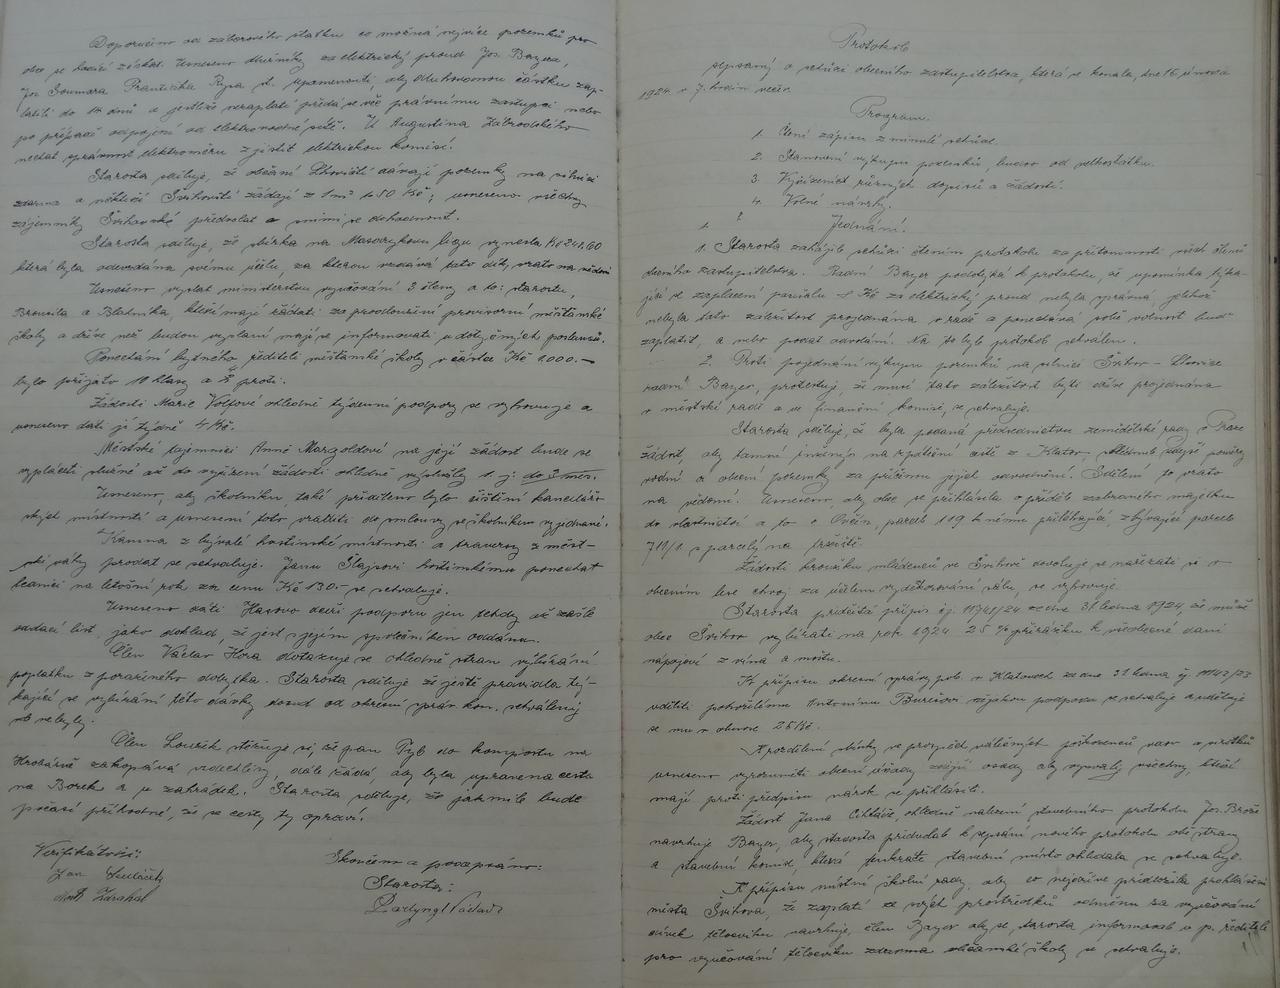 Doporučeno od záborového statku co možná nejvíce pozemků pro
obec se hledící získat. Usneseno dlužníky za elektrický proud Jos. Bayera,
Jos. Soumara Františka Rysa st. upomenouti, aby dluhovanou částku zap-
latili do 14 dnů a jestliže nezaplatí předá se věc právnímu zástupci nebo
po případě odpojení od elektrovodné sítě. U Augustina Zábrodského
nechat správnost elektroměru zjistit elektrickou komisí.
Starosta sděluje, že občané Lhovičtí dávají pozemky na silnici
zdarma a někteří Švihovští žádají z 1 m² 10 Kč; usneseno všechny
zájemníky Švihovské předvolat a s nimi se dohodnout.
Starosta sděluje, že sbírka na Masarykovu ligu vynesla Kč 241.60
která byla odevzdána svému účelu, za kterou vzdává tato díky, vzato na vědomí
Usneseno vyslat ministerstvu vyučování 3 členy a to: starostu,
Brousila a Blatníka, kteří mají žádati za prodloužení provisorní měšťanské
školy a dříve než budou vysláni mají se informovati u dotyčných poslanců.
Ponechání bytného řediteli měšťanské školy v částce Kč 1.000.—
bylo přijato 10 hlasy a 8 proti.
Žádosti Marie Volfové ohledně týdenní podpory se vyhovuje a
usneseno dáti jí týdně 4 Kč.
Městské tajemnici Anně Margoldové na její žádost bude se
vypláceti služné až do vyřízení žádosti ohledně výpovědi t. j. do 3 měs.
Usneseno, aby školníku také přiděleno bylo čištění kancelářs-
kých místností a usnesení toto vtěliti do smlouvy se školníkem vyjednané.
Kamna z bývalé hostinské místnosti a traversy z měst-
ské váhy prodat se schvaluje. Janu Šlajsovi hostinskému ponechat
lednici na letošní rok za cenu Kč 130.- se schvaluje.
Usneseno dáti Hasovo dceři podporu jen tehdy až zašle
oddací list, jako doklad, že jest s jejím společníkem oddána.
Člen Václav Hora dotazuje se ohledně stran vybírání
poplatku z poraženého dobytka. Starosta sděluje že ještě pravidla tý-
kající se vybírání této dávky dosud od okresní správ. kom. schváleny
nebyly.
Člen Louček stěžuje si, že pan Tyb do kompostu na
Hrobárně zakopává zdechliny, dále žádá, aby byla upravena cesta
na Borek a u zahrádek. Starosta sděluje, že jakmile bude
počasí příhodné, že se cesty ty opraví.
Verifikátoři:
Skončeno a podepsáno:
Jan Sedláček
Starosta:
Ant. Zdráhal
Protokol
sepsaný o schůzi obecního zastupitelstva, která se konala, dne 16. února
1924 v 7. hodin večer.
Program.
1. Čtení zápisu z minulé schůze.
2. Stanovení výkupu pozemků, budov od velkostatku.
3. Vyřizování různých dopisů a žádostí.
4. Volné návrhy.
Jednání:
1. Starosta zahájil schůzi čtením protokolu za přítomnosti všech členů
obecního zastupitelstva. Radní Bayer podotýká k protokolu, že upomínka týka-
jící se zaplacení paušálu Kč za elektrický proud nebyla správná, jelikož
nebyla tato záležitost projednána v radě a ponechává sobě volnost buď
zaplatit, a nebo podat odvolání. Na to byl protokol schválen.
2. Proti projednání výkupu pozemků na silnici Švihov – Lhovice
radní Bayer, protestuje, že musí tato záležitost býti dříve projednána
v městské radě a ve finanční komisi, se schvaluje.
Starosta sděluje, že byla podaná předsednictvu zemědělské rady v Praze
žádost, aby tamní
vodní a obecní pozemky za příčinou jejich odvodnění. Sdělení to vzato
na vědomí. Usneseno, aby obec se přihlásila o příděl zabraného majetku
do vlastnictví a to: Ovčín, parcela 119 k němu přiléhající, zbývající parcela
711/1 s parcely na tržiště.
Žádosti kroužku mládenců ve Švihově dovoluje se nařezati si v
obecním lese chvoj za účelem vydekorování sálu, se vyhovuje.
Starosta předčítá přípis čj. 11741/24 ze dne 31. ledna 1924, že může
obec Švihov vybírati na rok 1924 25% přirážku k všeobecné dani
nápojové z vína a moštu.
K přípisu okresní správy pol. v Klatovech ze dne 31. ledna čj. 1142/23
uděliti pohořelému Antonínu Burešovi nějakou podporu se schvaluje a uděluje
se mu v obnose 25 Kč.
K rozdělení sbírky ve prospěch válečných poškozenců vdov a sirotků
usneseno vyrozuměti obecní úřady zdejší osady aby vyzvaly všechny, kteří
mají proti předpisu nárok se přihlásili.
Žádost Jana Cihláře ohledně nalezení stavebního protokolu Jos. Brože
navrhuje Bayer, aby starosta přidružil k sepsání nového protokolu obě strany
a stavební komisi, která tenkráte stavební místo ohledala se schvaluje.
K přípisu místní školní rady, aby co nejdříve předložila prohlášení
města Švihova, že zaplatí ze svých prostředků odměnu za vyučování
dívek tělocviku navrhuje, člen Bayer aby se starosta informoval u p. ředitele
pro vyučování tělocviku zdarma občanské školy se schvaluje.